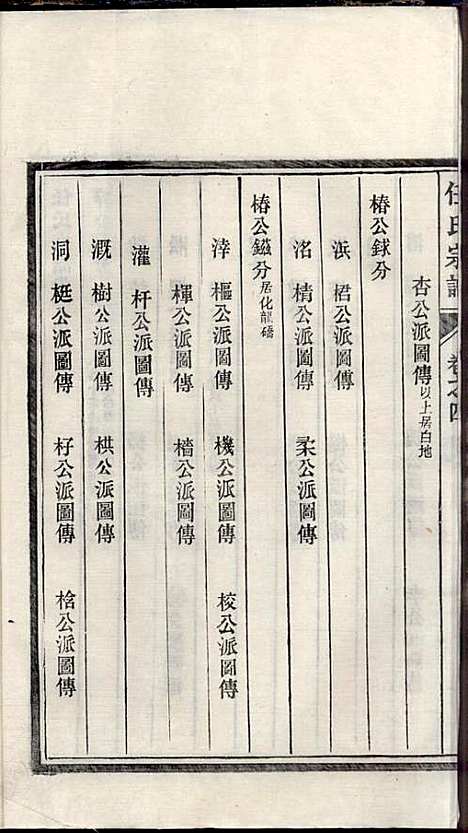 任氏宗譜
卷之四
杏公派圖傳以上居白地
椿公銶分
浜 桾公派圖傳
洺 棈公派圖傳 柔公派圖傳
椿公鎡分居化龍磻
渟 樞公派圖傳 機公派圖傳 棱公派圖傳
楎公派圖傳 檣公派圖傳
灌 杆公派圖傳
溉 樹公派圖傳 栱公派圖傳
洞 梃公派圖傳 杍公派圖傳 桧公派圖傳